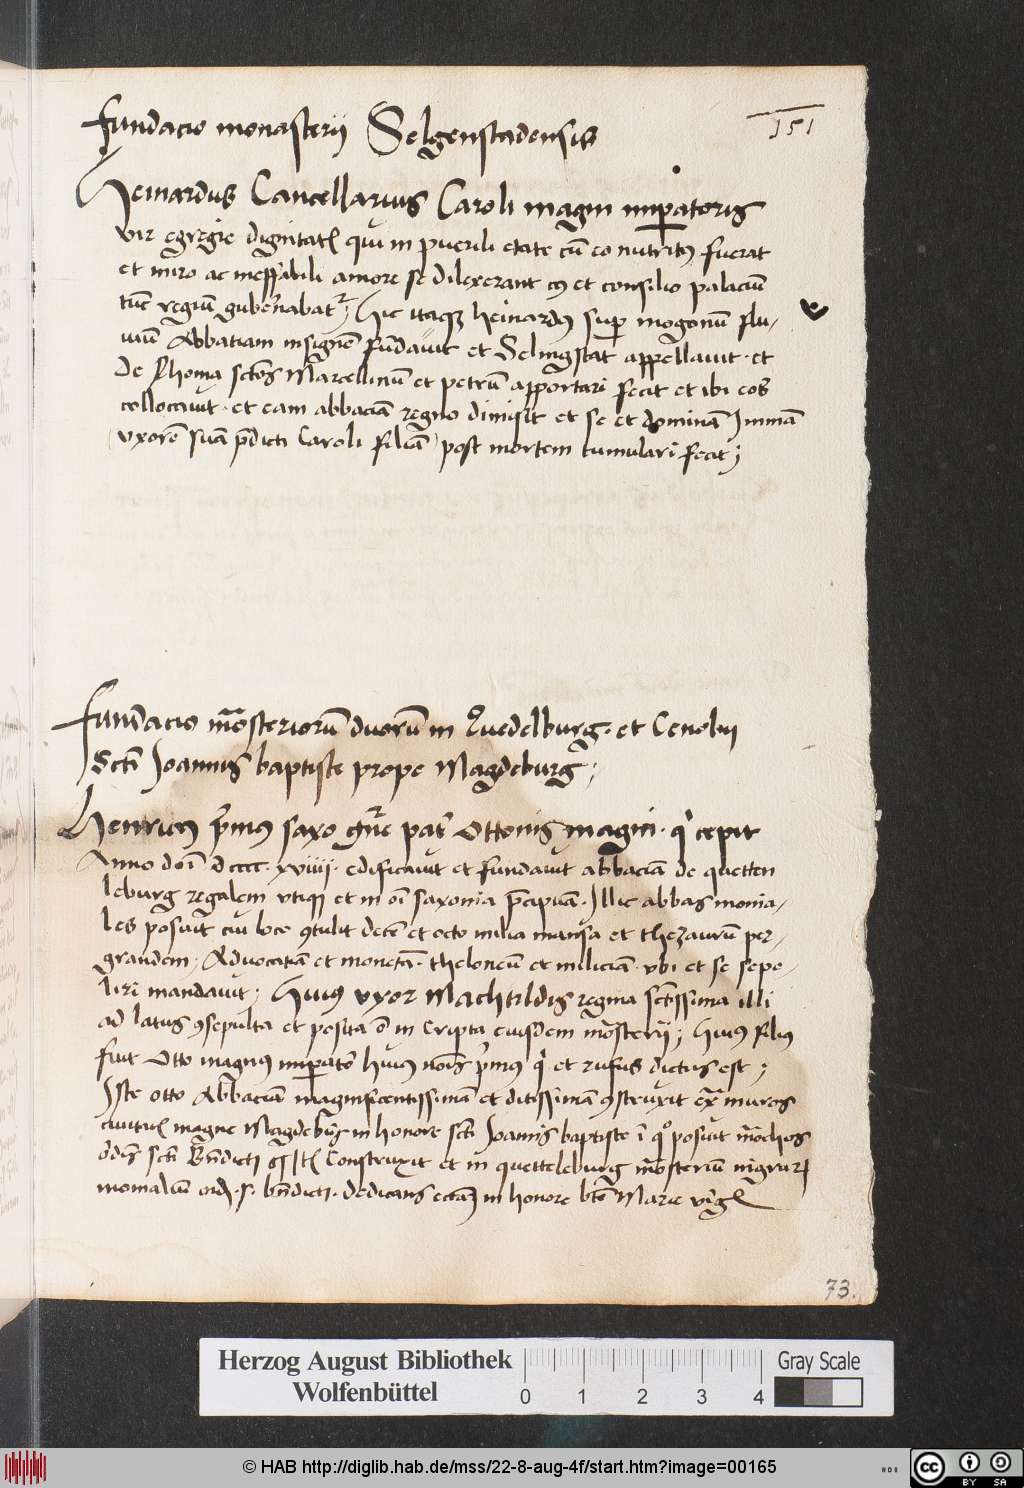 151
Fundacio monasterij Selgenstadensis
Heinardus Cancellarius Caroli magni imperatoris
vir egregie dignitatis qui in puerili etate cū eo nutritus fuerat
et miro ac ineffabili amore se dilexerant et consilio palaciū
tūc regiū gubernabatur; Hic itaque heinardus super mogonū flu-
uiū Abbatiam insignē fūdauit et Selingstat appellauit · et
de Rhoma sctōs Marcellinū et petrū apportari fecit et ibi eos
collocauit · et eam abbaciā regno dimisit et se et dominā Immā
(vxorē suā p̄dicti Caroli filiā) post mortem tumulari fecit;
Fundacio mōsteriorū duorū in Quedelburg · et Cenobij
Scti Joannis baptiste prope Magdeburg;
Henricus p̄mus saxo pat̄ Ottonis magni · qi cepit
Anno dōi dcccc · xviiii · edificauit et fundauit abbaciā de quetten
leburg regalem vtique et in oī saxonia p̄cipuā · Illic abbas monia-
les posuit cui loco 9tulit decē et octo milia mansa et thezaurū per-
grandem; Aduocatiā et monetā · theloneū et miliciā · vbi et se sepe-
liri mandauit; Huius vxor Machtildis regina sctissima illi
ad latus 9sepulta et posita ē in Cripta eiusdem mōsterij; Huius filius
fuit Otto magnus imperator huius noīs p̄mus qi et rufus dictus est;
Iste otto Abbaciā magnificentissimā et ditissimā 9struxit ex̄ muros
ciuitatis magne Magdeburg in honore scti Joannis baptiste ī quo posuit mōchos
ordīs scti Bn̄dicti Construxit et in quetteleburg mōsteriū nigrarum
monialiū ord · s · bn̄dicti · dedicans eccām in honore btē Marie virgīs
73.
Herzog August Bibliothek
Wolfenbüttel
0 1 2 3 4
Gray Scale
© HAB http://diglib.hab.de/mss/22-8-aug-4f/start.htm?image=00165
cc BY SA